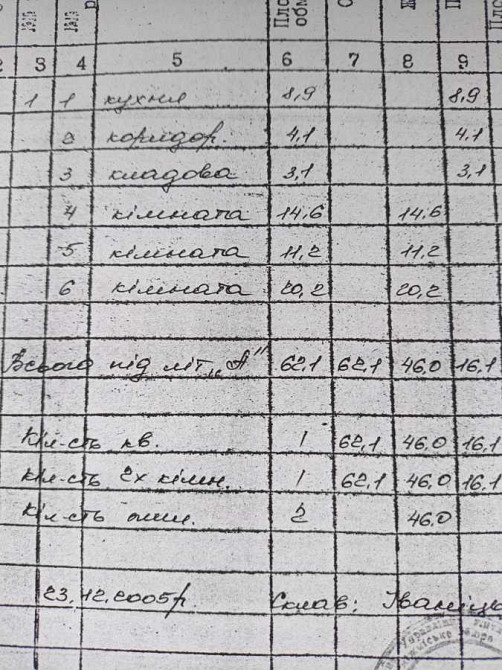 3 4 5 6 7 8 9
1 1 кухня 8,9 8,9
2 коридор. 4,1 4,1
3 кладова 3,1 3,1
4 кімната 14,6 14,6
5 кімната 11,2 11,2
6 кімната 20,2 20,2
Всього під літ. „А" 62,1 62,1 46,0 16,1
Кіл-сть кв. 1 62,1 46,0 16,1
Кіл-сть 2х кімн. 1 62,1 46,0 16,1
Кіл-сть 2 46,0
23.12.2005р Склав: